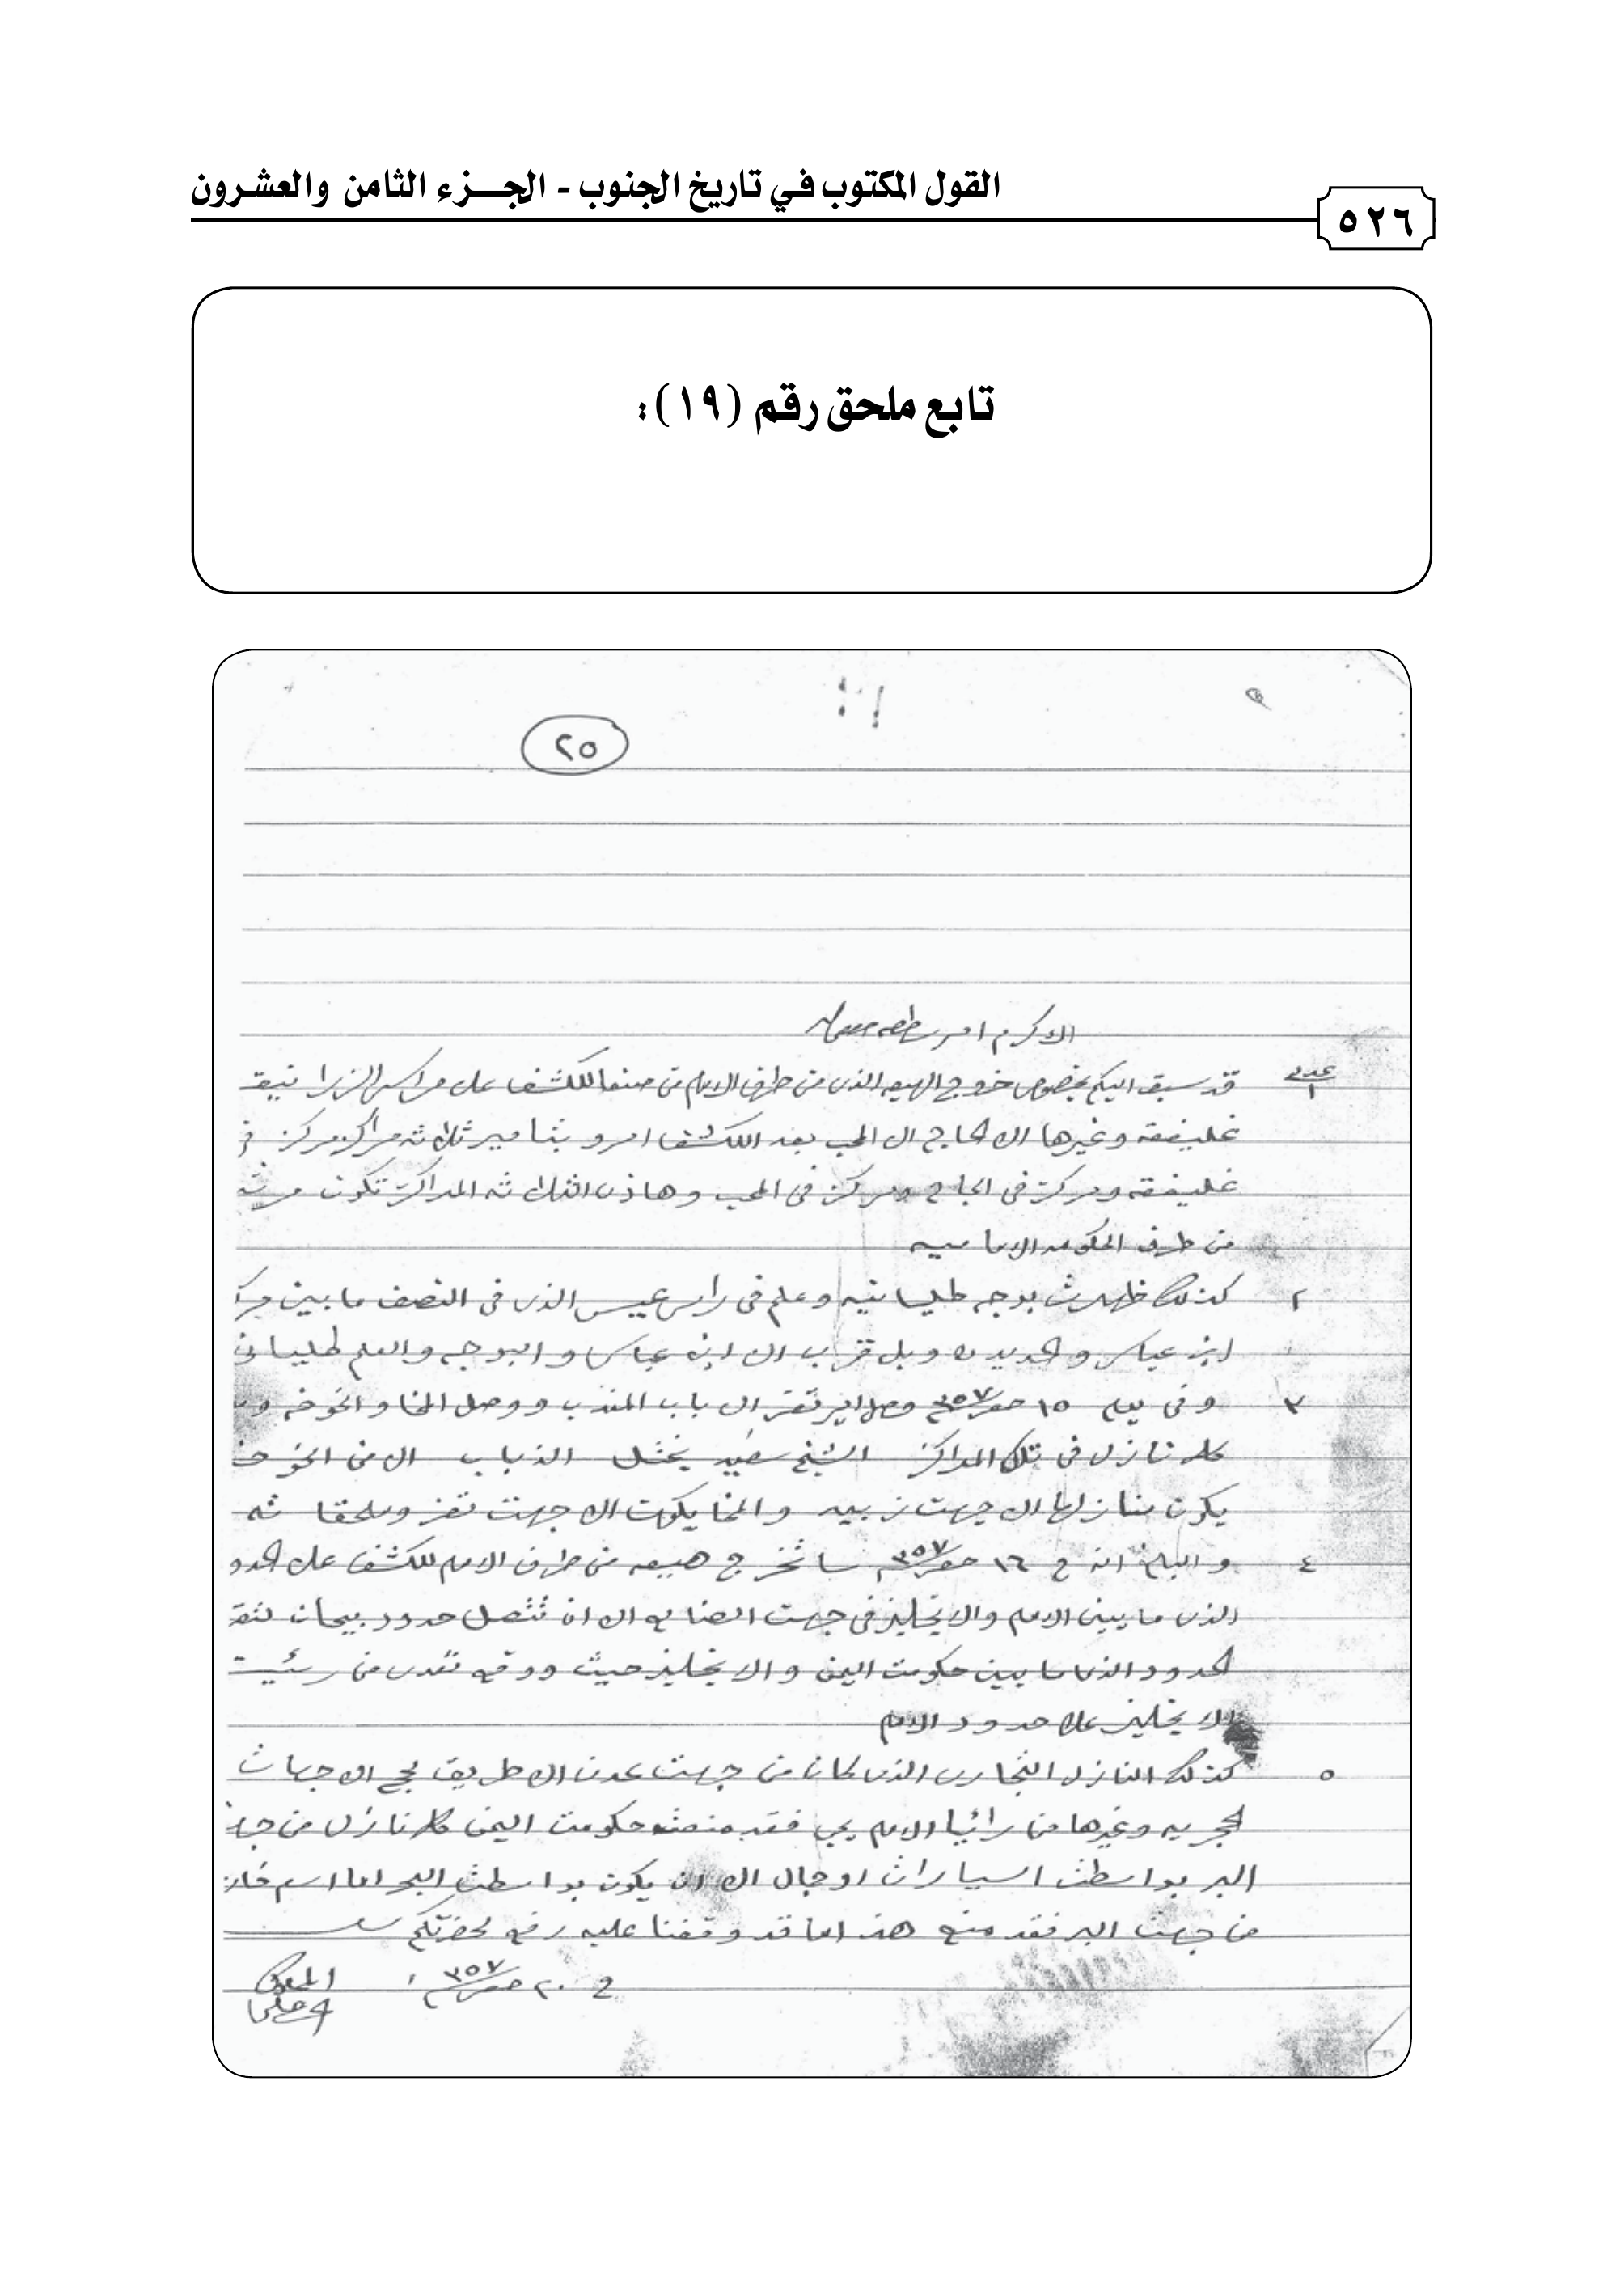 القول المكتوب في تاريخ الجنوب - الجزء الثامن والعشرون
٥٢٦
تابع ملحق رقم (١٩):
٢٥
الاكرم امير
عدد ١ قد سبق اليكم بخصوص خروج الهيعه الذى من طرف الامام من صنعا للكشف على مراسى الزرانيق
غليفقه وغيرها الا الجاح الى المجب بعد الكشف امرو بتامير ثلاثه مراكز مركز فى
غليفقه ومركز فى الجاح ومركز فى المجب وهاذى الثلاثه المراكز تكون
من طرف الحكومه الاماميه
٢ كذلك ظهرت بوجه طليانيه وعلم فى راس عيسى الذى فى النصف ما بين
ابن عباس و الحديده وبل قراب الى ابن عباس و البوجه والعلم طليانى
٣ وفى يوم ١٥ صفر ٣٥٧ وصل امير تعز الى باب المندب ووصل المخا والخوخه
كلا نازل فى تلك المراكز الشيخ سعيد الذباب الا من
يكون منازلها الا جهت زبيد والمخا يكون الا جهت تعز وملحقاته
٤ والبلاغ انه ١٦ صفر ٣٥٧ ساتخرج هيعه من طرف الامام للكشف على الحدود
الذى ما بين الامام والانجليز فى جهت الضالع الا ان تتصل حدود بيحان
الحدود الذى ما بين حكومت اليمن والانجليز حيث ووقع تعدى من
الانجليز على حدود الامام
٥ كذلك النازل التجارى الذى كان من جهت عدن الا طريق لحج الا جهات
الحجريه وغيرها من الامام يحيى فقد منعت حكومت اليمن كلا نازل من
البر بواسطت السيارات او جمال الا ان يكون بواسطت البحر اما اسم
من جهت البر فقد منع هذ اما قد وقفنا عليه رفع لحضرتكم
٢٠ صفر ٣٥٧
المملوك